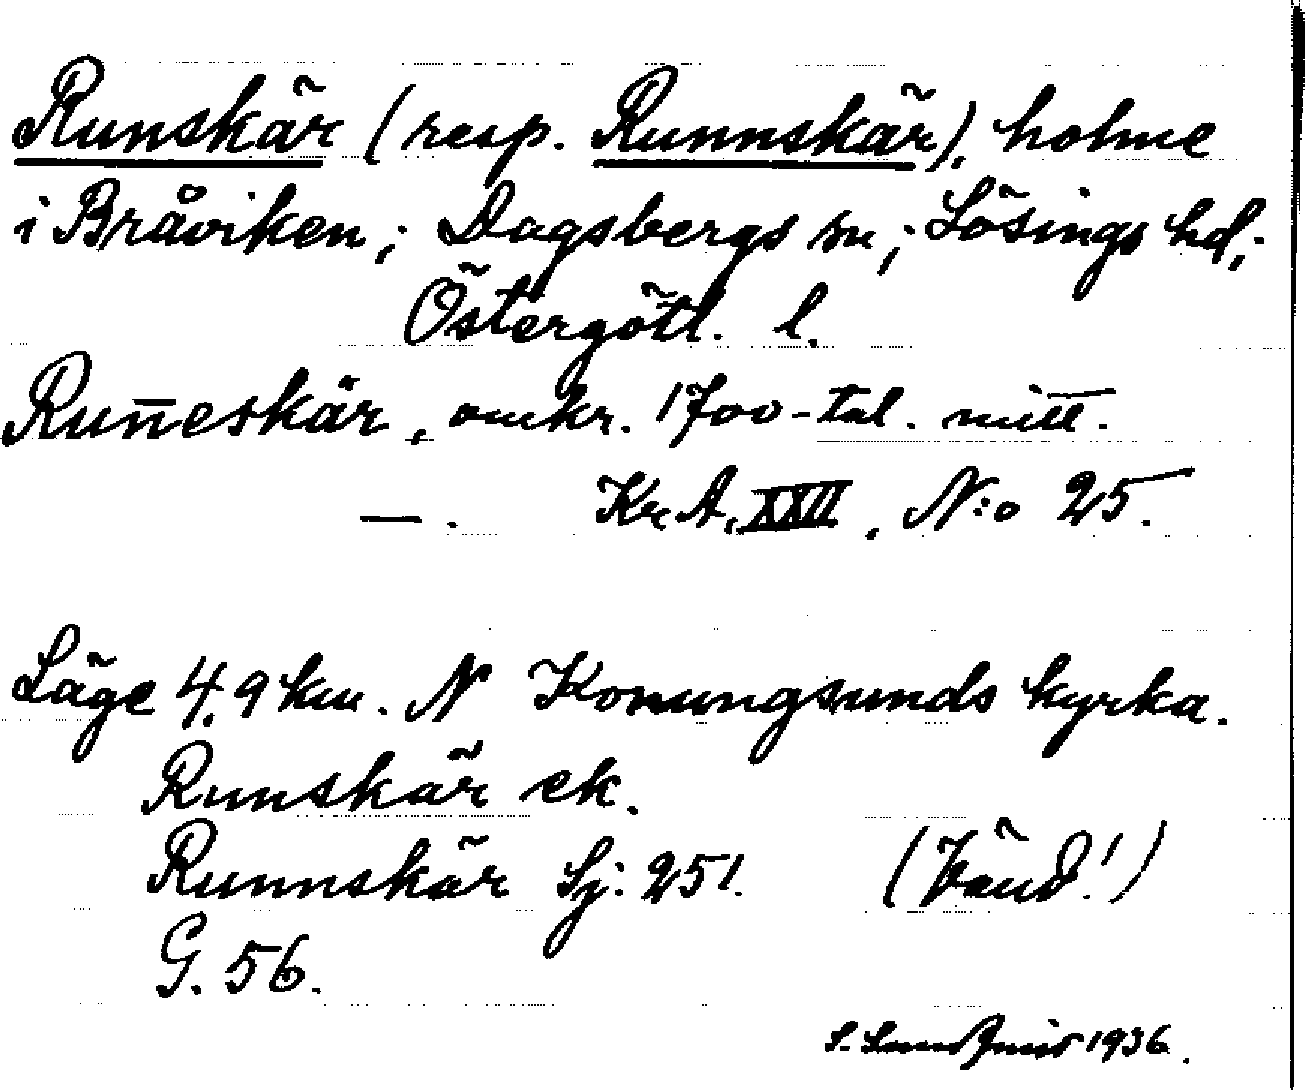 Runskär (resp. Runnskär), holme
i Bråviken; Dagsbergs sn; Lösings hd;
Östergötl. l.
Run̄eskär, omkr. 1700-tal. mitt.
—. Kr. A. XXII, N:o 25.
Läge 4,9 km. N Konungsunds kyrka.
Runskär ek.
Runnskär Sj. 251. (Vänd!)
G. 56.
S. 1936.